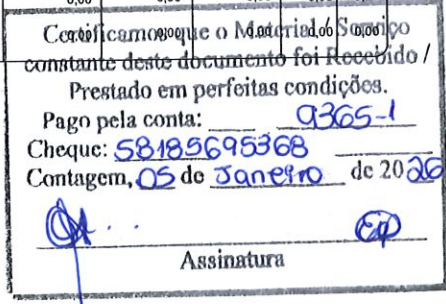 Certificamos que o Material ou Serviço
constante deste documento foi Recebido /
Prestado em perfeitas condições.
Pago pela conta: 9365-1
Cheque: 58185695368
Contagem, 05 de Janeiro de 2026
Assinatura